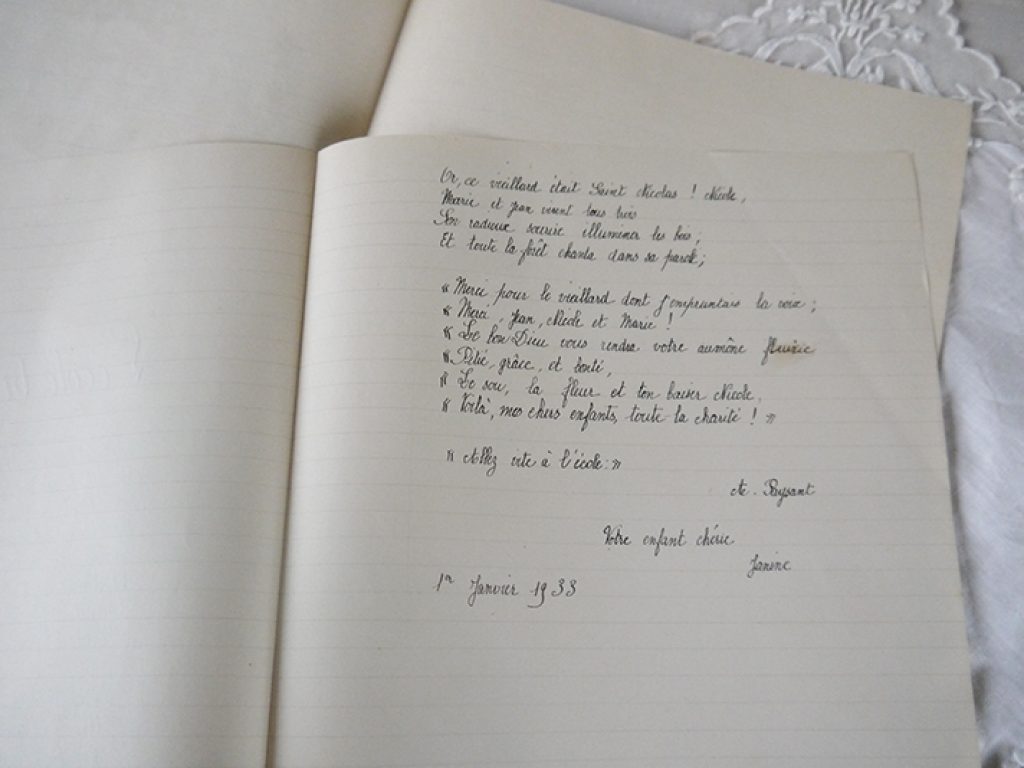 Or, ce vieillard était Saint Nicolas ! Nicole,
Marie et Jean virent tous trois
Son radieux sourire illuminer les bois ;
Et toute la forêt chanta dans sa parole ;
« Merci pour le vieillard dont j'empruntais la voix ;
« Merci, Jean, Nicole et Marie !
« Le bon Dieu vous rendra votre aumône fleurie
« Pitié, grâce, et bonté,
« Le sou, la fleur et ton baiser Nicole,
« Voilà, mes chers enfants, toute la charité ! »
« Allez vite à l'école : »
Paysant
Votre enfant chérie
Janine
1er Janvier 1933